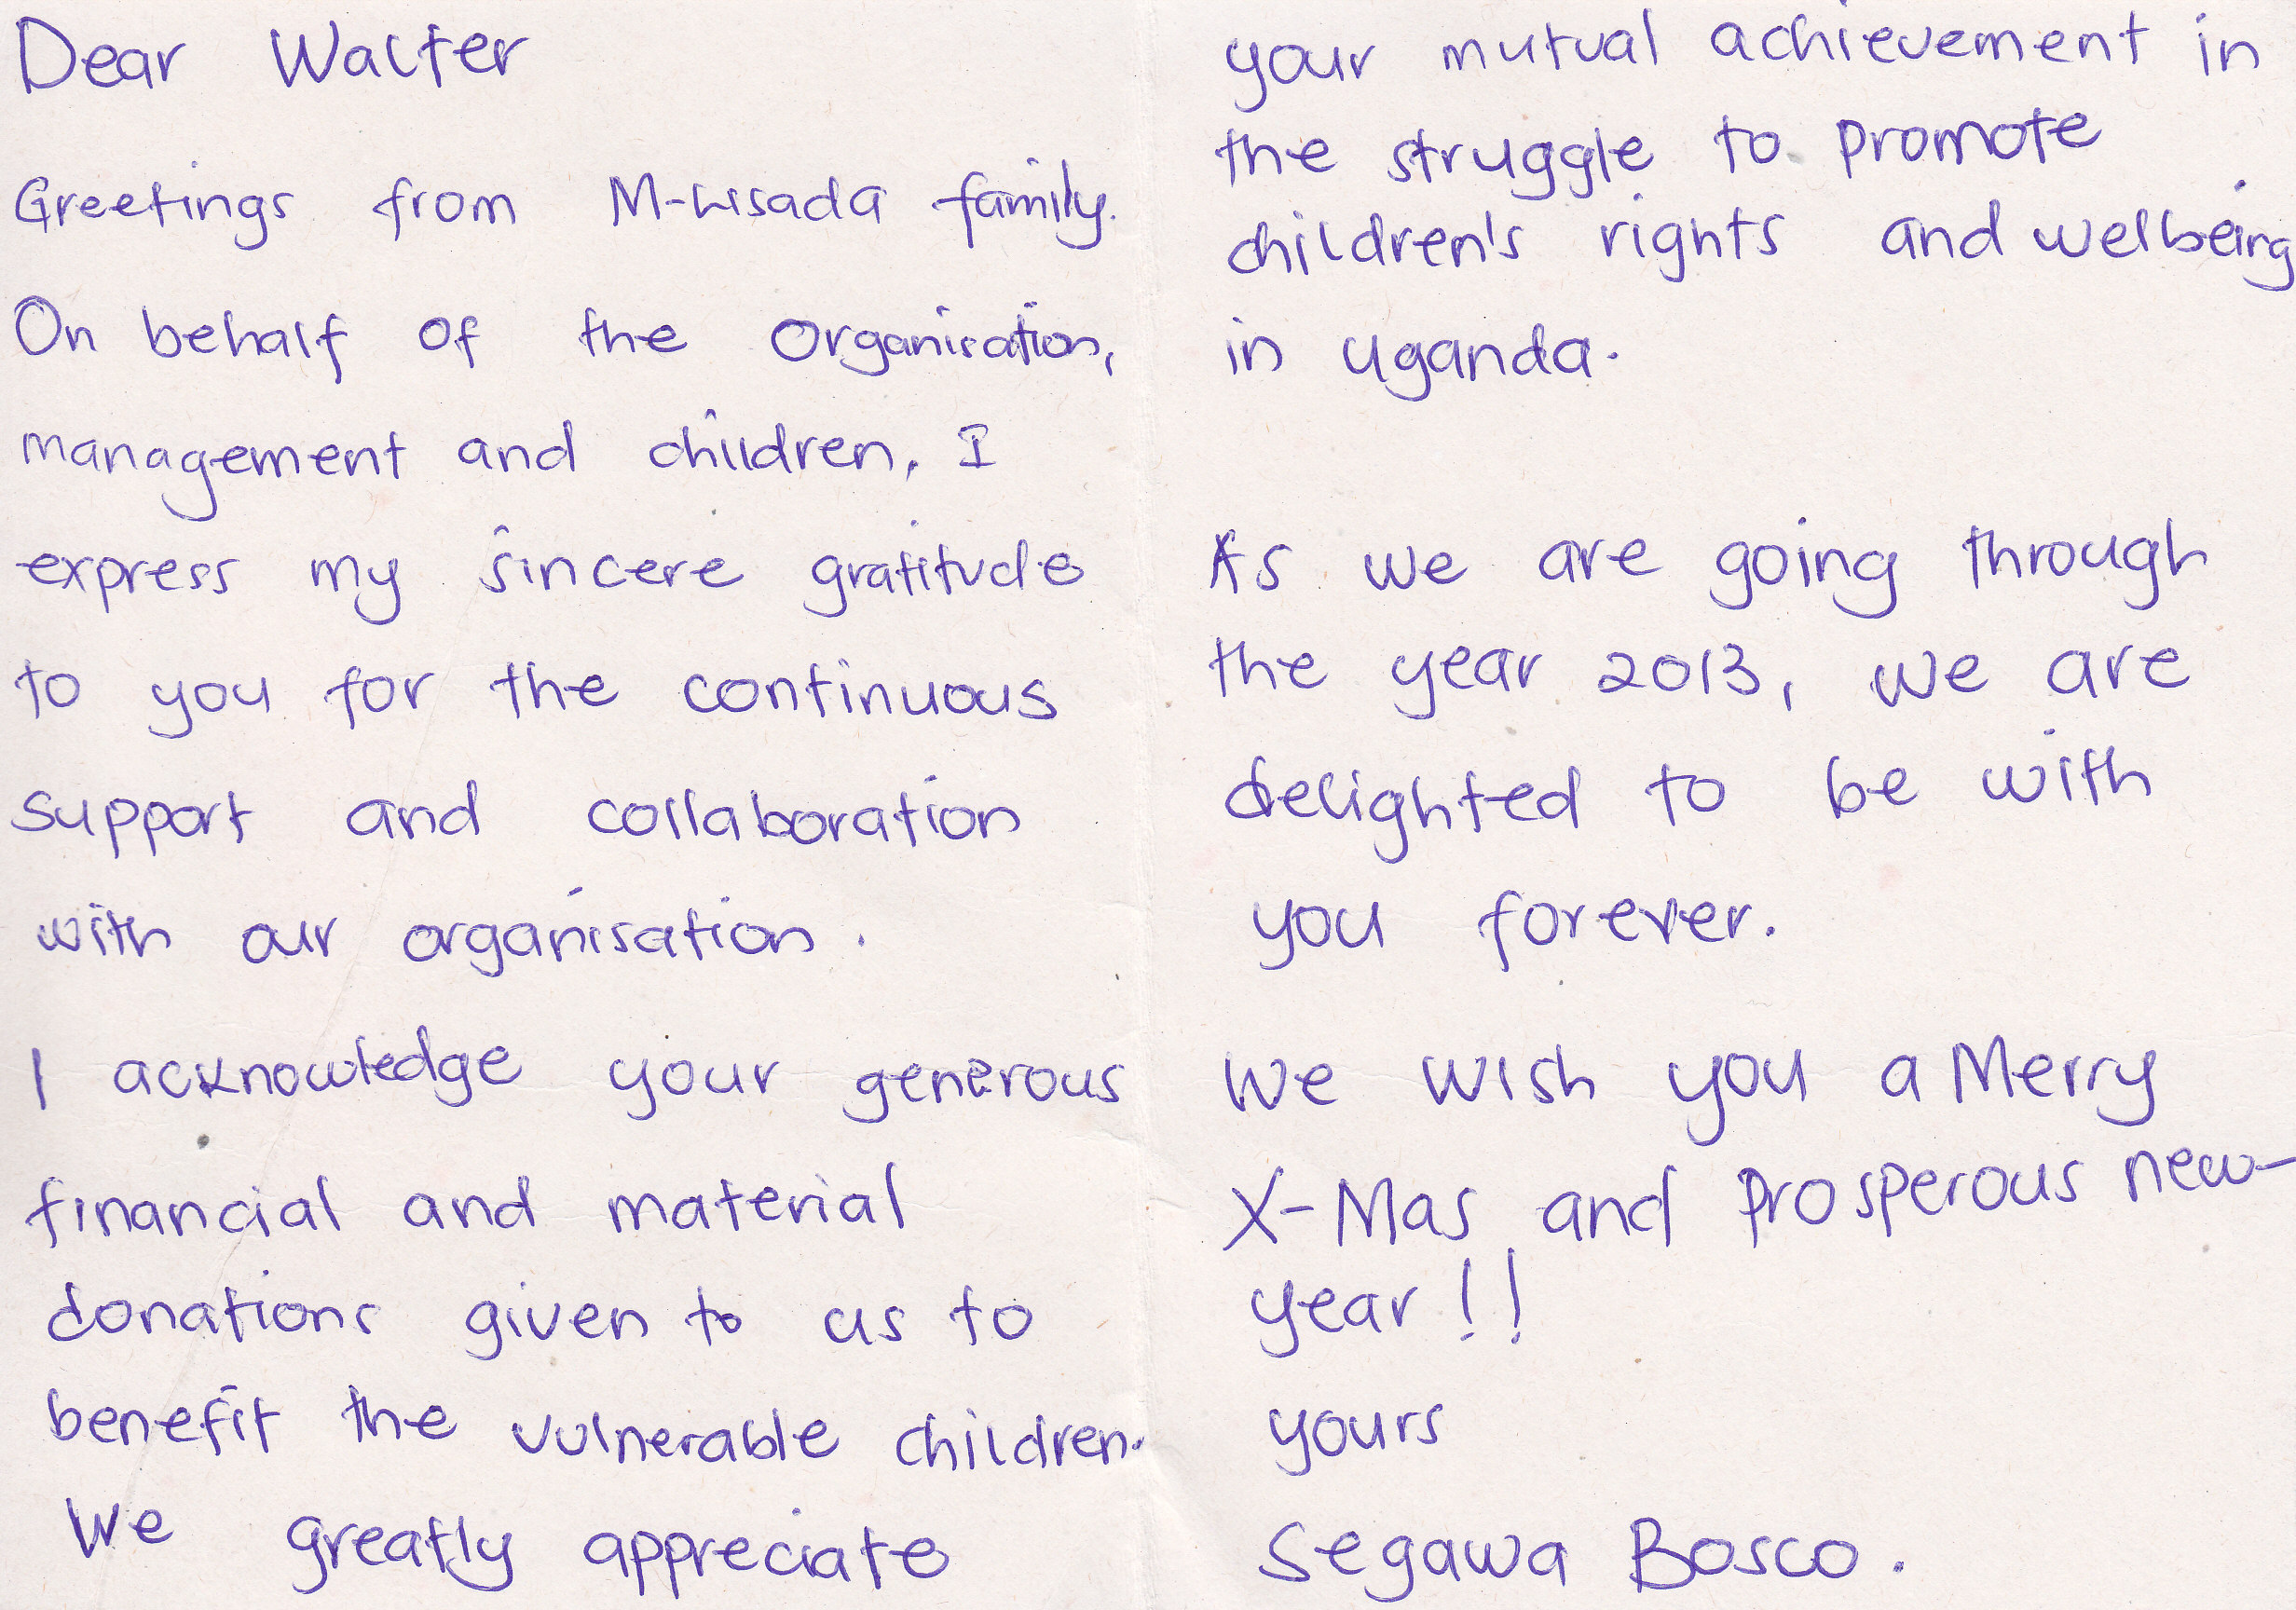 Dear Walter
Greetings from M-Lisada family.
On behalf of the Organisation,
management and children, I
express my sincere gratitude
to you for the continuous
support and collaboration
with our organisation.
I acknowledge your generous
financial and material
donations given to us to
benefit the vulnerable children.
We greatly appreciate
your mutual achievement in
the struggle to promote
children's rights and welbeing
in Uganda.
As we are going through
the year 2013, we are
delighted to be with
you forever.
We wish you a Merry
X-Mas and Prosperous new-
year!!
yours
Segawa Bosco.